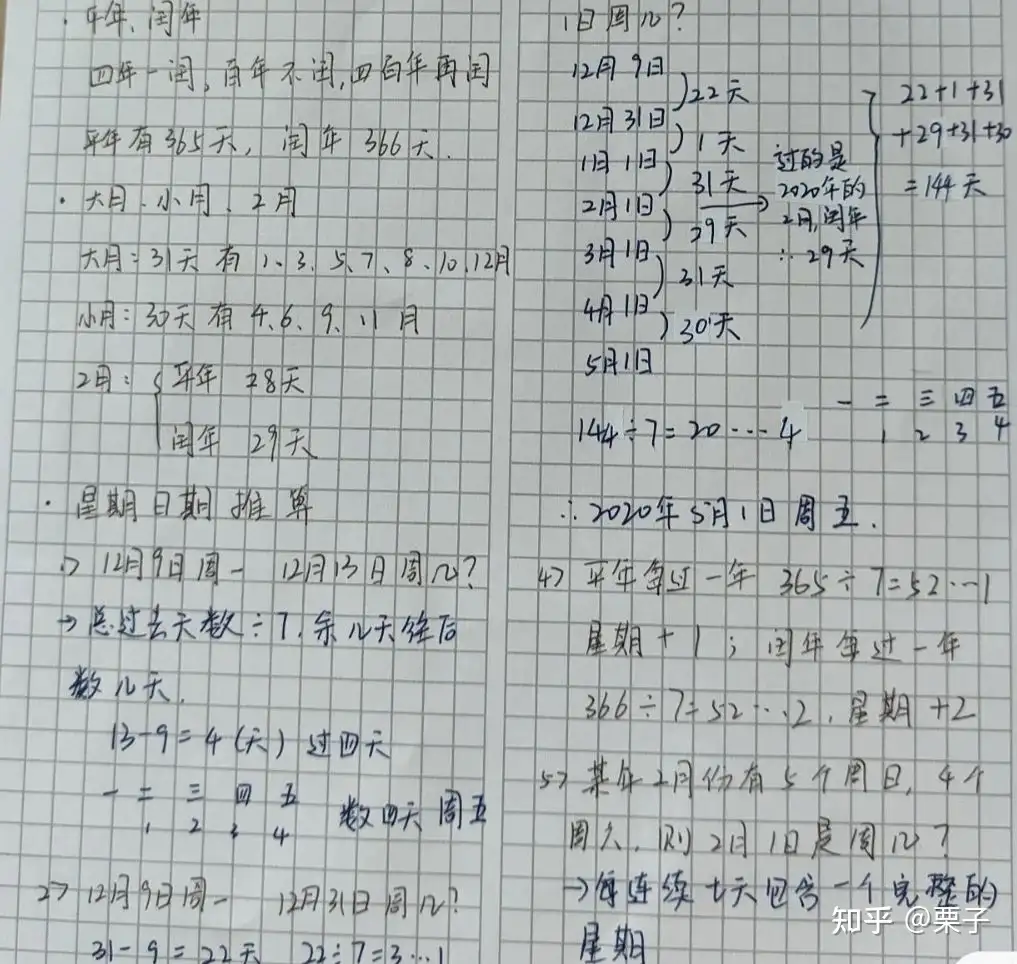 · 平年、闰年
四年一闰,百年不闰,四百年再闰
平年有365天, 闰年 366天.
· 大月、小月、2月
大月:31天 有 1、3、5、7、8、10、12月
小月:30天 有 4、6、9、11 月
2月:{ 平年 28天
闰年 29天
· 星期日期推算
1> 12月9日周一 12月13日周几?
→ 总过去天数÷7.余几天往后
数几天.
13-9=4(天) 过四天
一 二 三 四 五 数四天 周五
1 2 3 4
2> 12月9日周一 12月31日周几?
31-9=22天 22÷7=3…1
1日周几?
12月9日
)22天
12月31日
)1天
1月1日
)31天
2月1日
)29天
3月1日
)31天
4月1日
)30天
5月1日
过的是
2020年的
2月,闰年
∴29天
22+1+31
+29+31+30
=144天
144÷7=20…4
一 二 三 四 五
1 2 3 4
∴2020年5月1日周五.
4> 平年每过一年 365÷7=52…1
星期+1;闰年每过一年
366÷7=52…2,星期+2
5> 某年2月份有5个周日,4个
周六,则2月1日是周几?
→每连续七天包含一个完整的
星期
知乎 @栗子